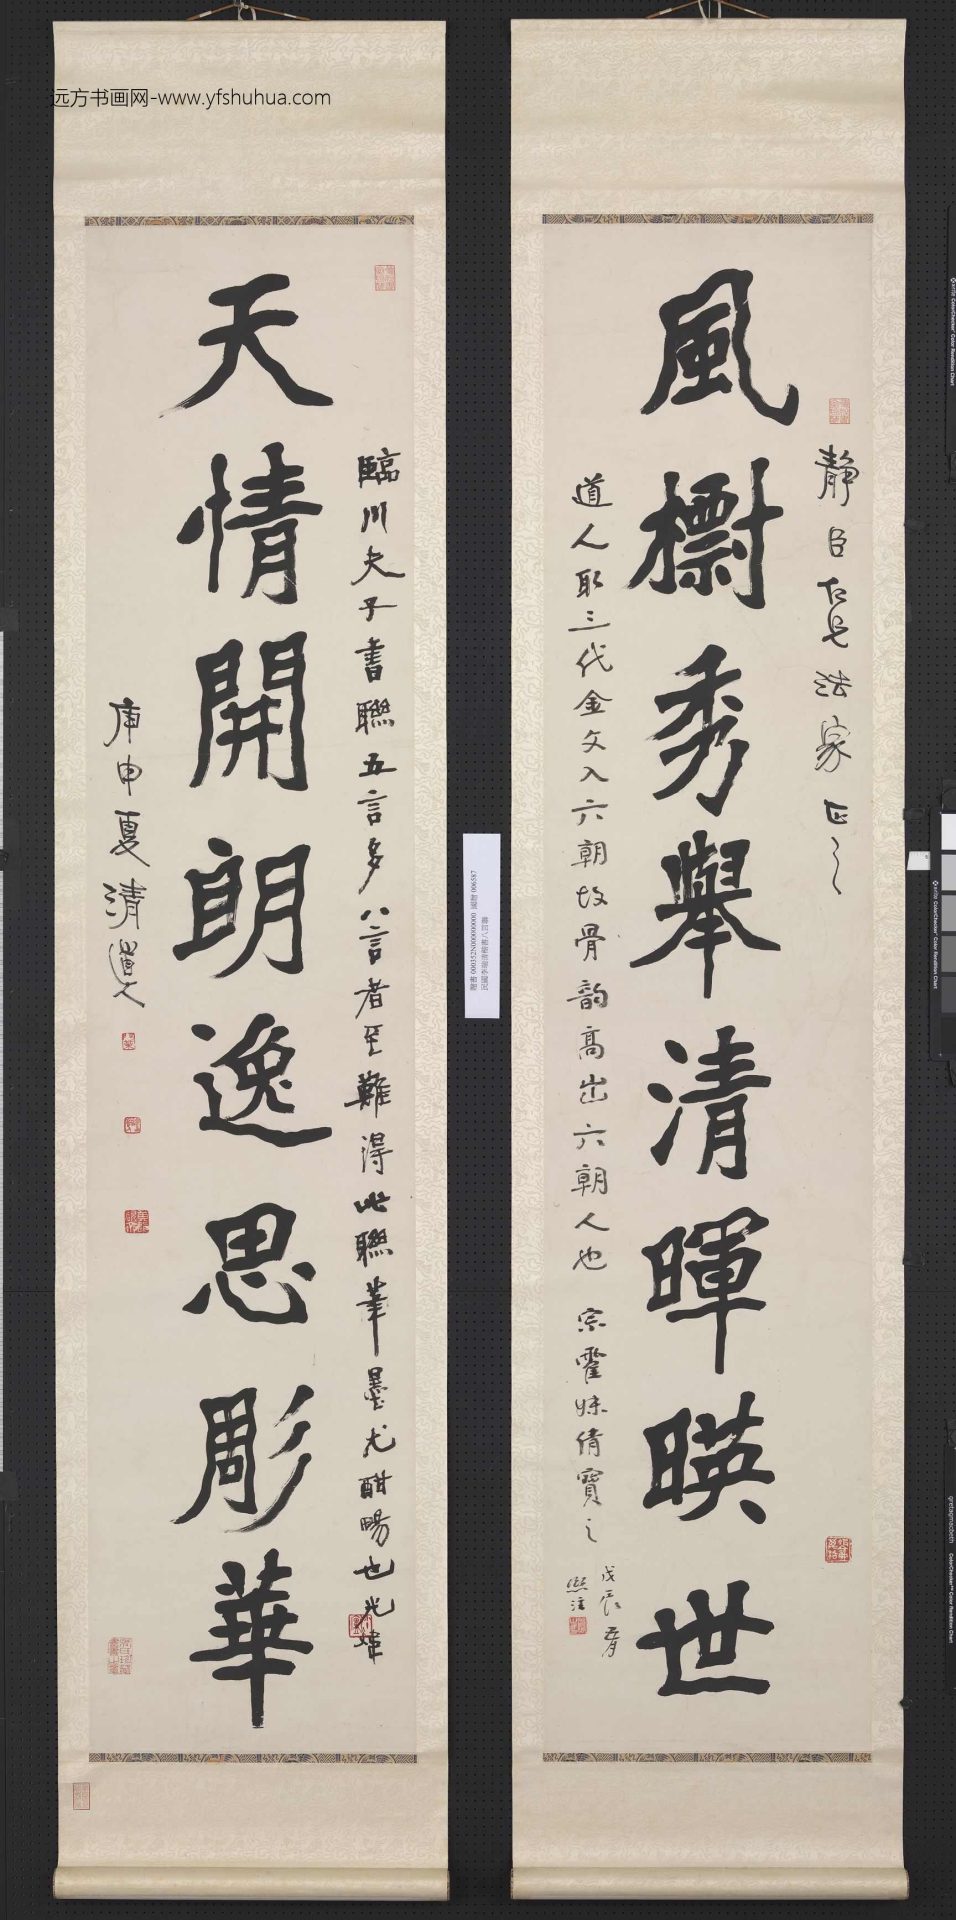 远方书画网-www.yfshuhua.com
靜臣仁兄法家正之
風樹秀舉清暉暎世
道人取三代金文入六朝故骨韵高出六朝人也 宗霍妹倩寶之
戊辰
熙注
臨川夫子書聯五言多八言者至難得此聯筆墨尤酣暢也光煒
天情開朗逸思彫華
庚申夏清道人
贈書 000352N000000000 國贈 006587
民國李瑞清楷書八言聯